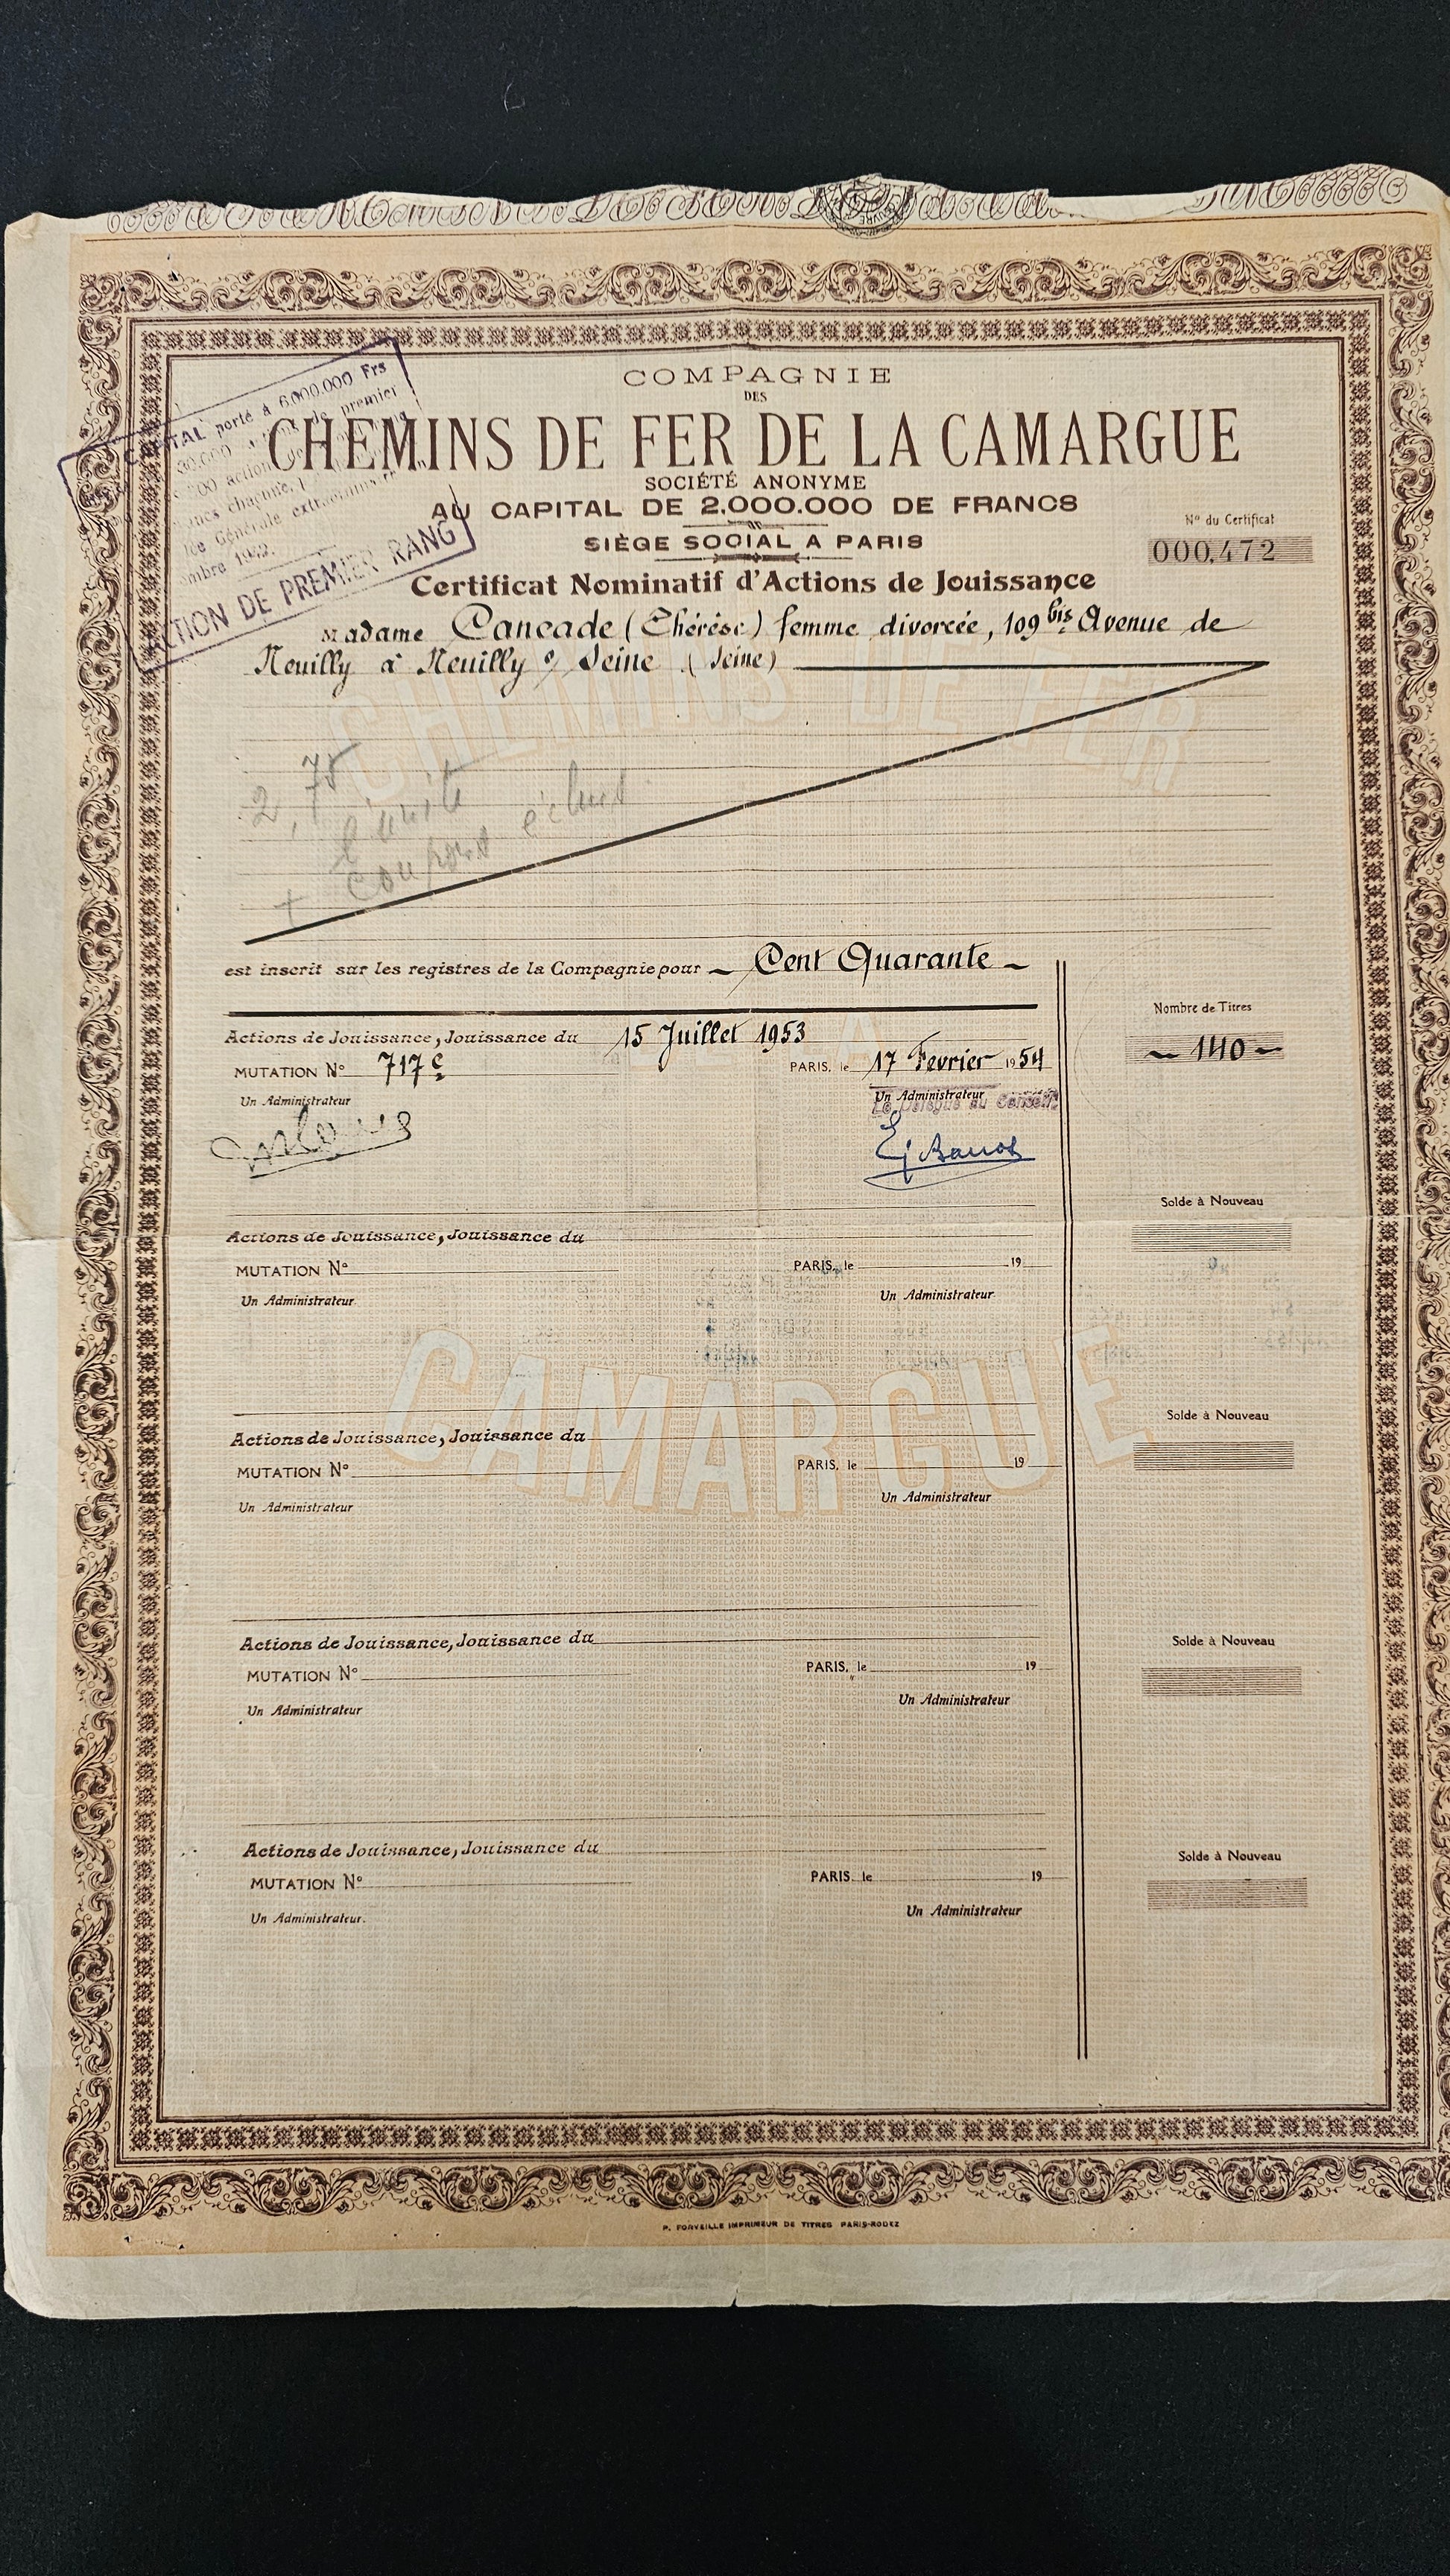 COMPAGNIE
DES
CHEMINS DE FER DE LA CAMARGUE
SOCIÉTÉ ANONYME
AU CAPITAL DE 2.000.000 DE FRANCS
SIÈGE SOCIAL A PARIS
Certificat Nominatif d'Actions de Jouissance
porté à 6.000.000 Frs
premier
chacune,
Générale
DE PREMIER RANG
Nº du Certificat
000,472
Madame Cancade (Thérèse) femme divorcée, 109 bis Avenue de
Neuilly à Neuilly s/ Seine (Seine)
CHEMINS DE FER
2,75
l'unité
+ coupons échus
est inscrit sur les registres de la Compagnie pour Cent Quarante
Nombre de Titres
140
Actions de Jouissance, Jouissance du 15 Juillet 1953
MUTATION Nº 717 c
PARIS, le 17 Fevrier 1954
Un Administrateur
Un Administrateur
Le Délégué du Conseil
Solde à Nouveau
Actions de Jouissance, Jouissance du
MUTATION Nº
PARIS, le 19
Un Administrateur
Un Administrateur
CAMARGUE
Solde à Nouveau
Actions de Jouissance, Jouissance du
MUTATION Nº
PARIS, le 19
Un Administrateur
Un Administrateur
Solde à Nouveau
Actions de Jouissance, Jouissance du
MUTATION Nº
PARIS, le 19
Un Administrateur
Un Administrateur
Solde à Nouveau
Actions de Jouissance, Jouissance du
MUTATION Nº
PARIS, le 19
Un Administrateur.
Un Administrateur
P. FORVEILLE IMPRIMEUR DE TITRES PARIS-RODEZ